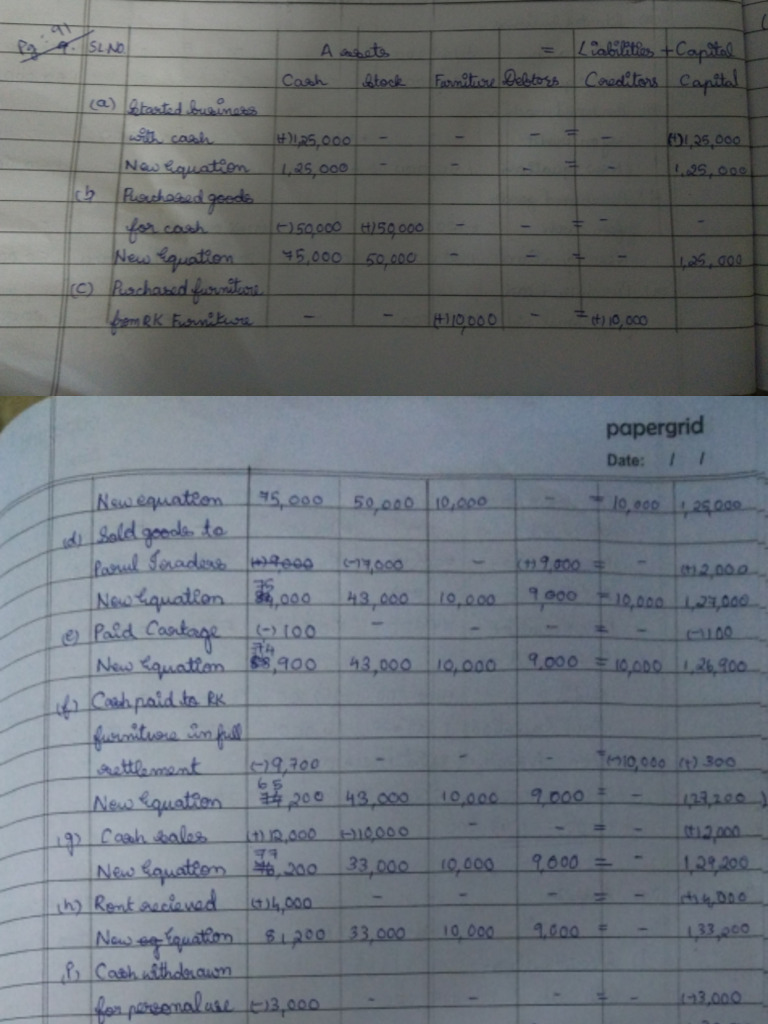 Pg: 91
SLNO Assets = Liabilities + Capital
Cash Stock Furniture Debtors Creditors Capital
(a) Started business
with cash (+)1,25,000 - - - = - (+)1,25,000
New Equation 1,25,000 - - - = - 1,25,000
(b Purchased goods
for cash (-)50,000 (+)50,000 - - = - -
New Equation 75,000 50,000 - - = - 1,25,000
(C) Purchased furniture
from RK Furniture - - (+)10,000 - = (+)10,000
papergrid
Date: / /
New equation 75,000 50,000 10,000 - = 10,000 1,25,000
(d) Sold goods to
Parul Traders (+)9,000 (-)7,000 - (+)9,000 = - (+)2,000
New Equation 75,000 43,000 10,000 9,000 = 10,000 1,27,000
(e) Paid Cartage (-)100 - - - = - (-)100
New Equation 74,900 43,000 10,000 9,000 = 10,000 1,26,900
(f) Cash paid to RK
furniture in full
settlement (-)9,700 - - - = (-)10,000 (+)300
New Equation 65,200 43,000 10,000 9,000 = - 1,27,200
(g) Cash sales (+)12,000 (-)10,000 - - = - (+)2,000
New Equation 77,200 33,000 10,000 9,000 = - 1,29,200
(h) Rent recieved (+)4,000 - - - = - (+)4,000
New eq Equation 81,200 33,000 10,000 9,000 = - 1,33,200
(i) Cash withdrawn
for personal use (-)3,000 - - - = - (-)3,000